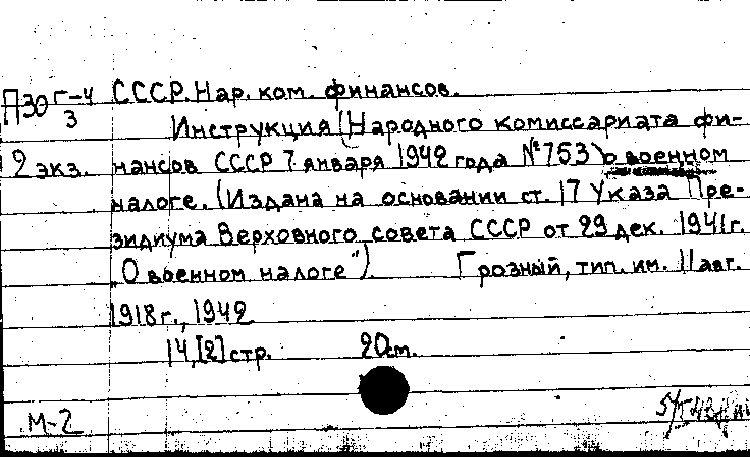 П30 Г-4/3 СССР. Нар. ком. финансов.
Инструкция (Народного комиссариата фи-
2 экз. нансов СССР 7 января 1942 года № 753) о военном
налоге. (Издана на основании ст. 17 Указа Пре-
зидиума Верховного совета СССР от 29 дек. 1941г.
„О военном налоге"). Грозный, тип. им. 11 авг.
1918 г., 1942
14, [2] стр. 20 см.
М-2